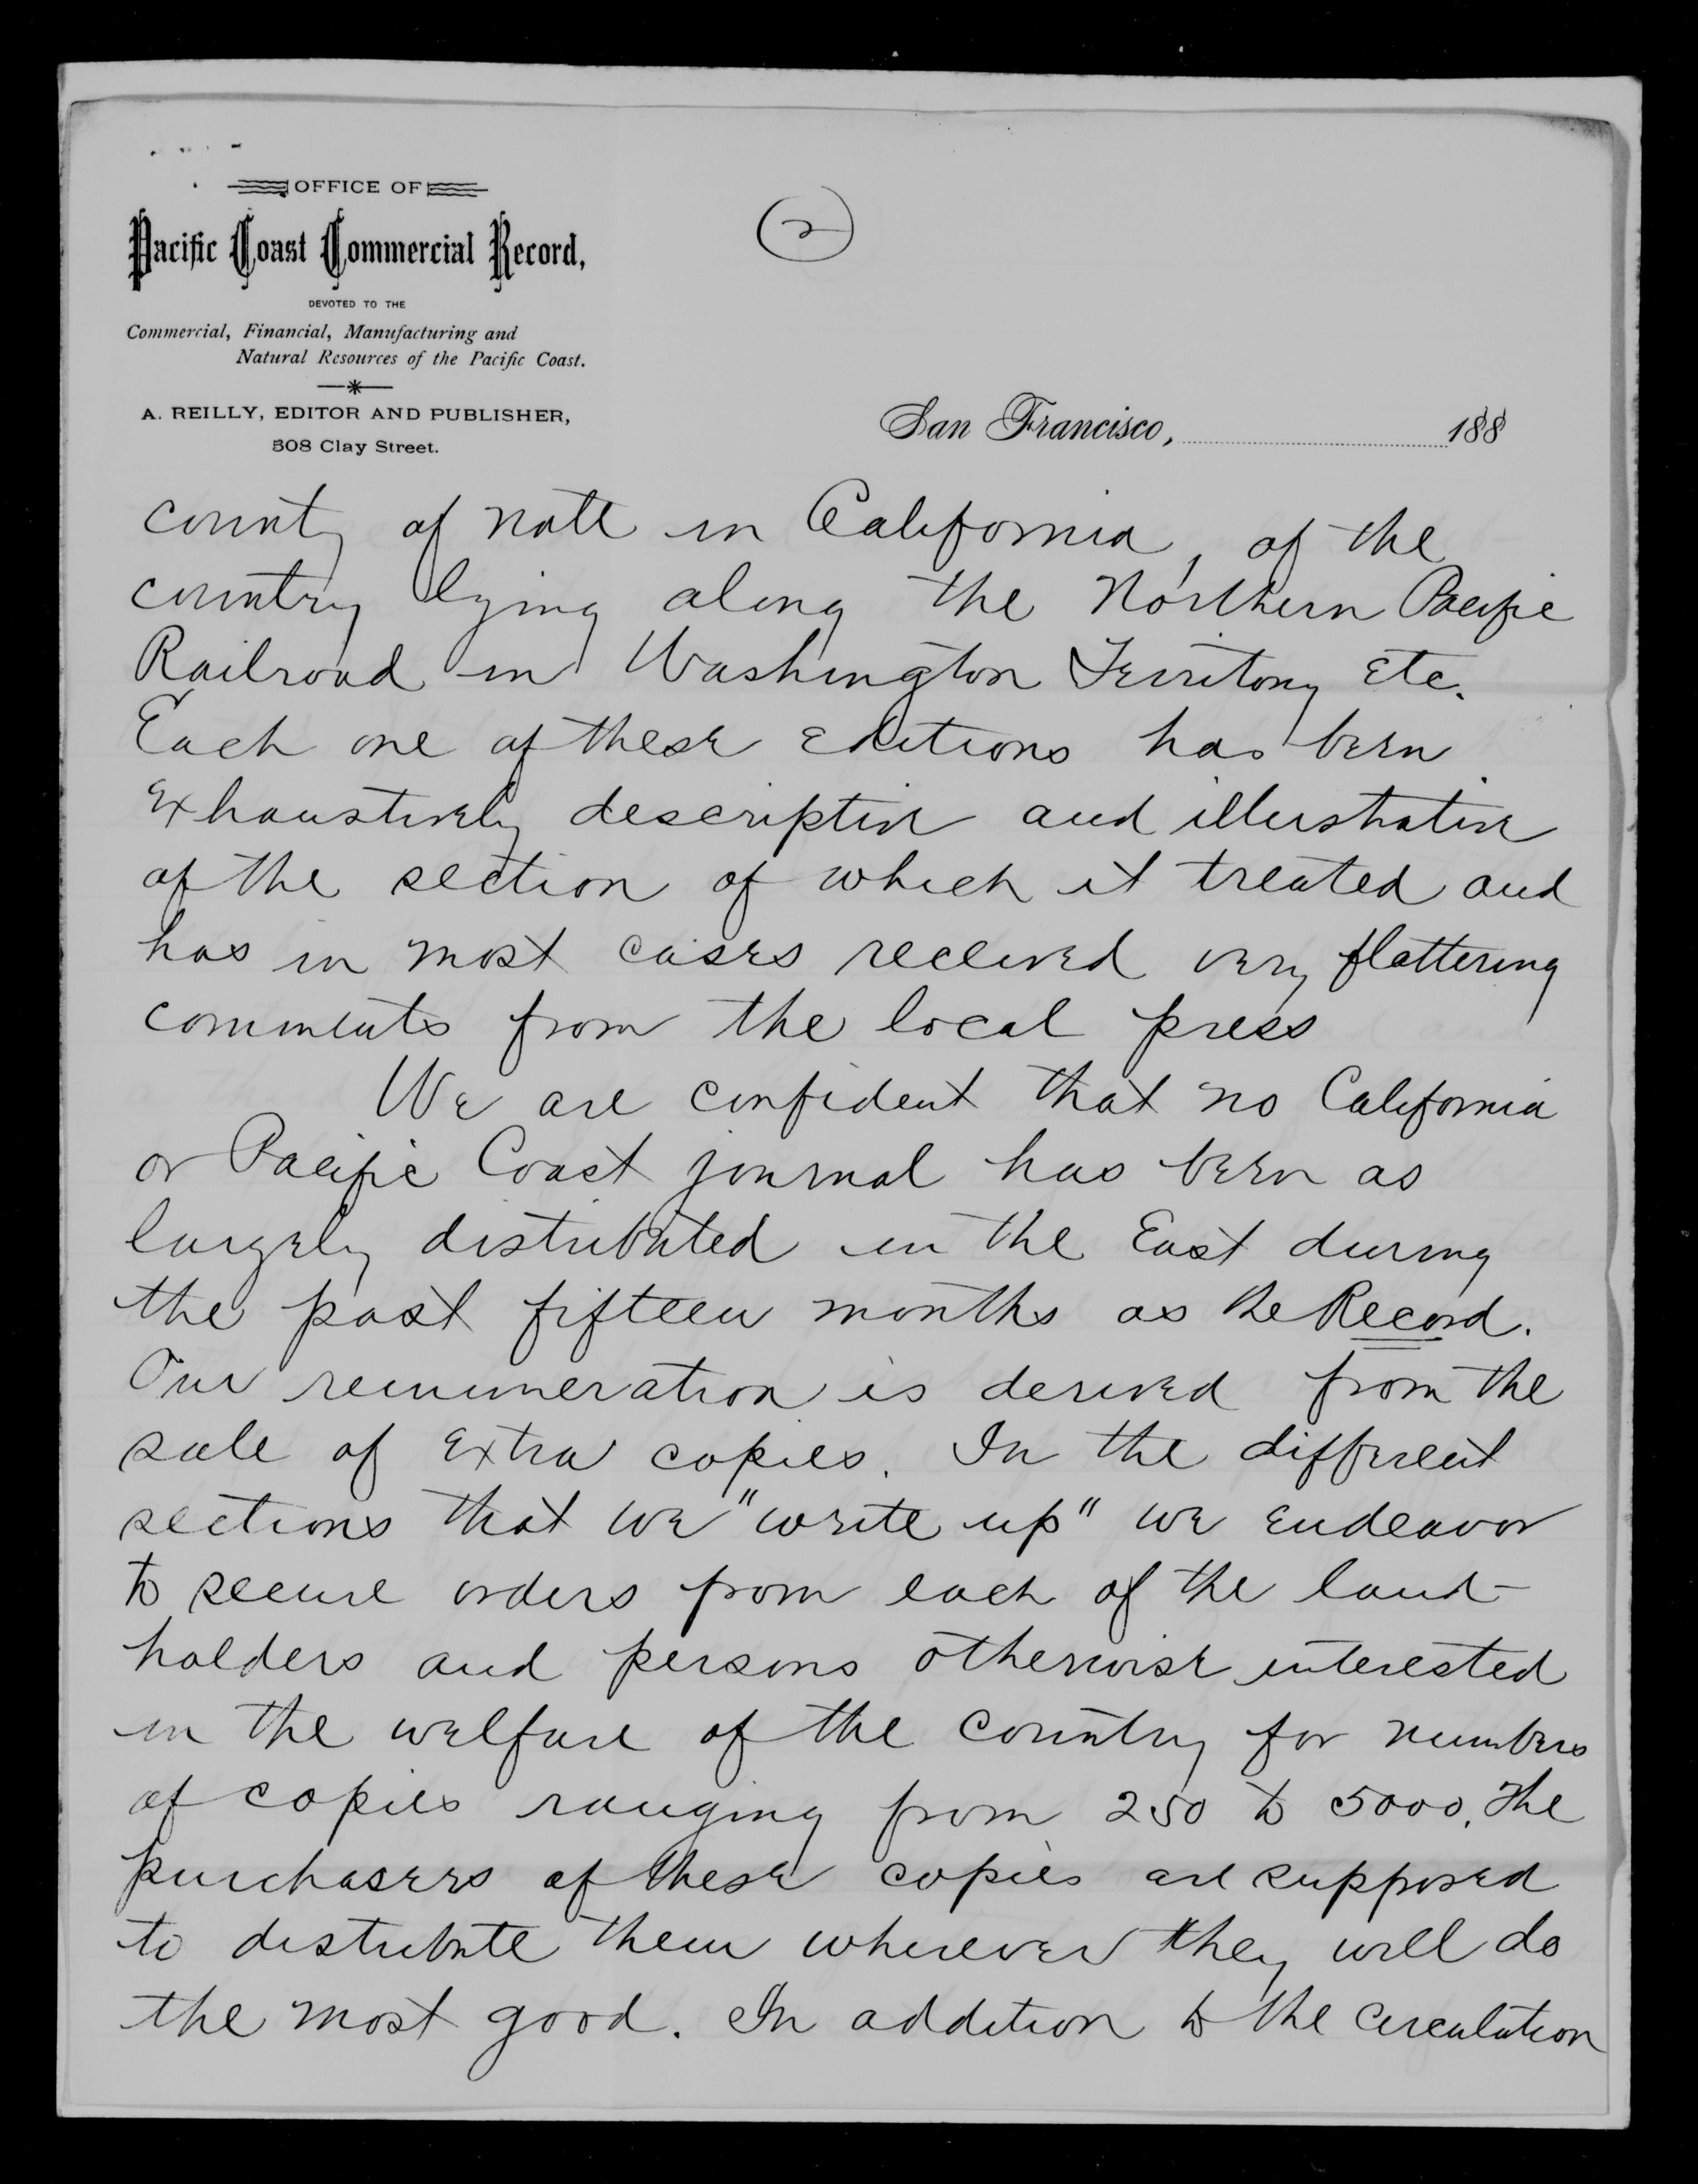 OFFICE OF
(2)
Pacific Coast Commercial Record,
DEVOTED TO THE
Commercial, Financial, Manufacturing and
Natural Resources of the Pacific Coast.
A. REILLY, EDITOR AND PUBLISHER,
508 Clay Street.
San Francisco, 188
county of note in California, of the
country lying along the Northern Pacific
Railroad in Washington Territory etc.
Each one of these editions has been
exhaustively descriptive and illustrative
of the section of which it treated and
has in most cases received very flattering
comments from the local press
We are confident that no California
or Pacific Coast journal has been as
largely distributed in the East during
the past fifteen months as the Record.
Our remuneration is derived from the
sale of extra copies. In the different
sections that we "write up" we endeavor
to secure orders from each of the land-
holders and persons otherwise interested
in the welfare of the country for numbers
of copies ranging from 250 to 5000. The
purchasers of these copies are supposed
to distribute them wherever they will do
the most good. In addition to the circulation